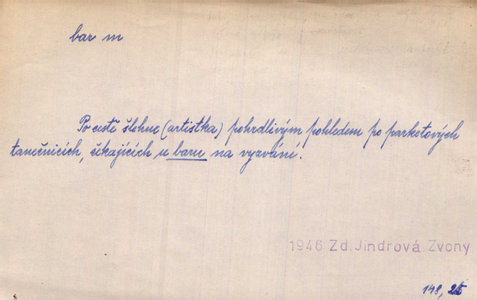 bar m
Po cestě šlehne (artistka) pohrdlivým pohledem po parketových
tanečnicích, čekajících u baru na vyzvání.
1946 Zd. Jindrová Zvony
148, 25